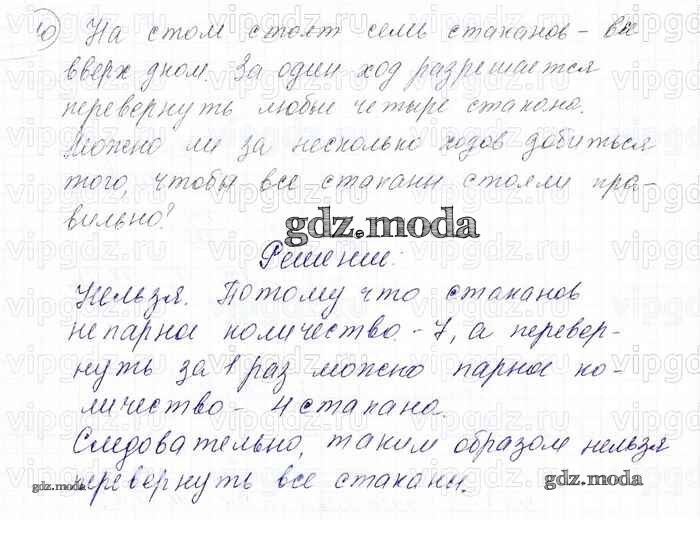 10) На столе стоят семь стаканов – все
вверх дном. За один ход разрешается
перевернуть любые четыре стакана.
Можно ли за несколько ходов добиться
того, чтобы все стаканы стояли пра-
вильно?
gdz.moda
Решение:
Нельзя. Потому что стаканов
непарное количество - 7, а перевер-
нуть за 1 раз можно парное ко-
личество - 4 стакана.
Следовательно, таким образом нельзя
перевернуть все стаканы.
gdz.moda
gdz.moda